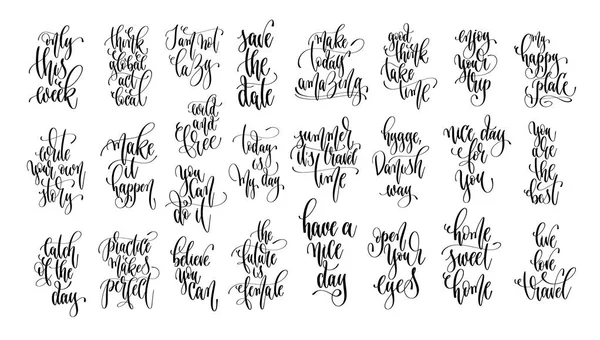 only
this
week
think
global
act
local
I am not
lazy
save
the
date
make
today
amazing
good
think
take
time
enjoy
your
trip
my
happy
place
write
your own
story
make
it
happen
wild
and
free
you
can
do it
today
is
my day
summer
it's travel
time
hygge,
Danish
way
nice day
for
you
you
are
the
best
catch
of the
day
practice
makes
perfect
believe
you
can
the
future
is
female
have a
nice
day
open
your
eyes
home
sweet
home
live
love
travel